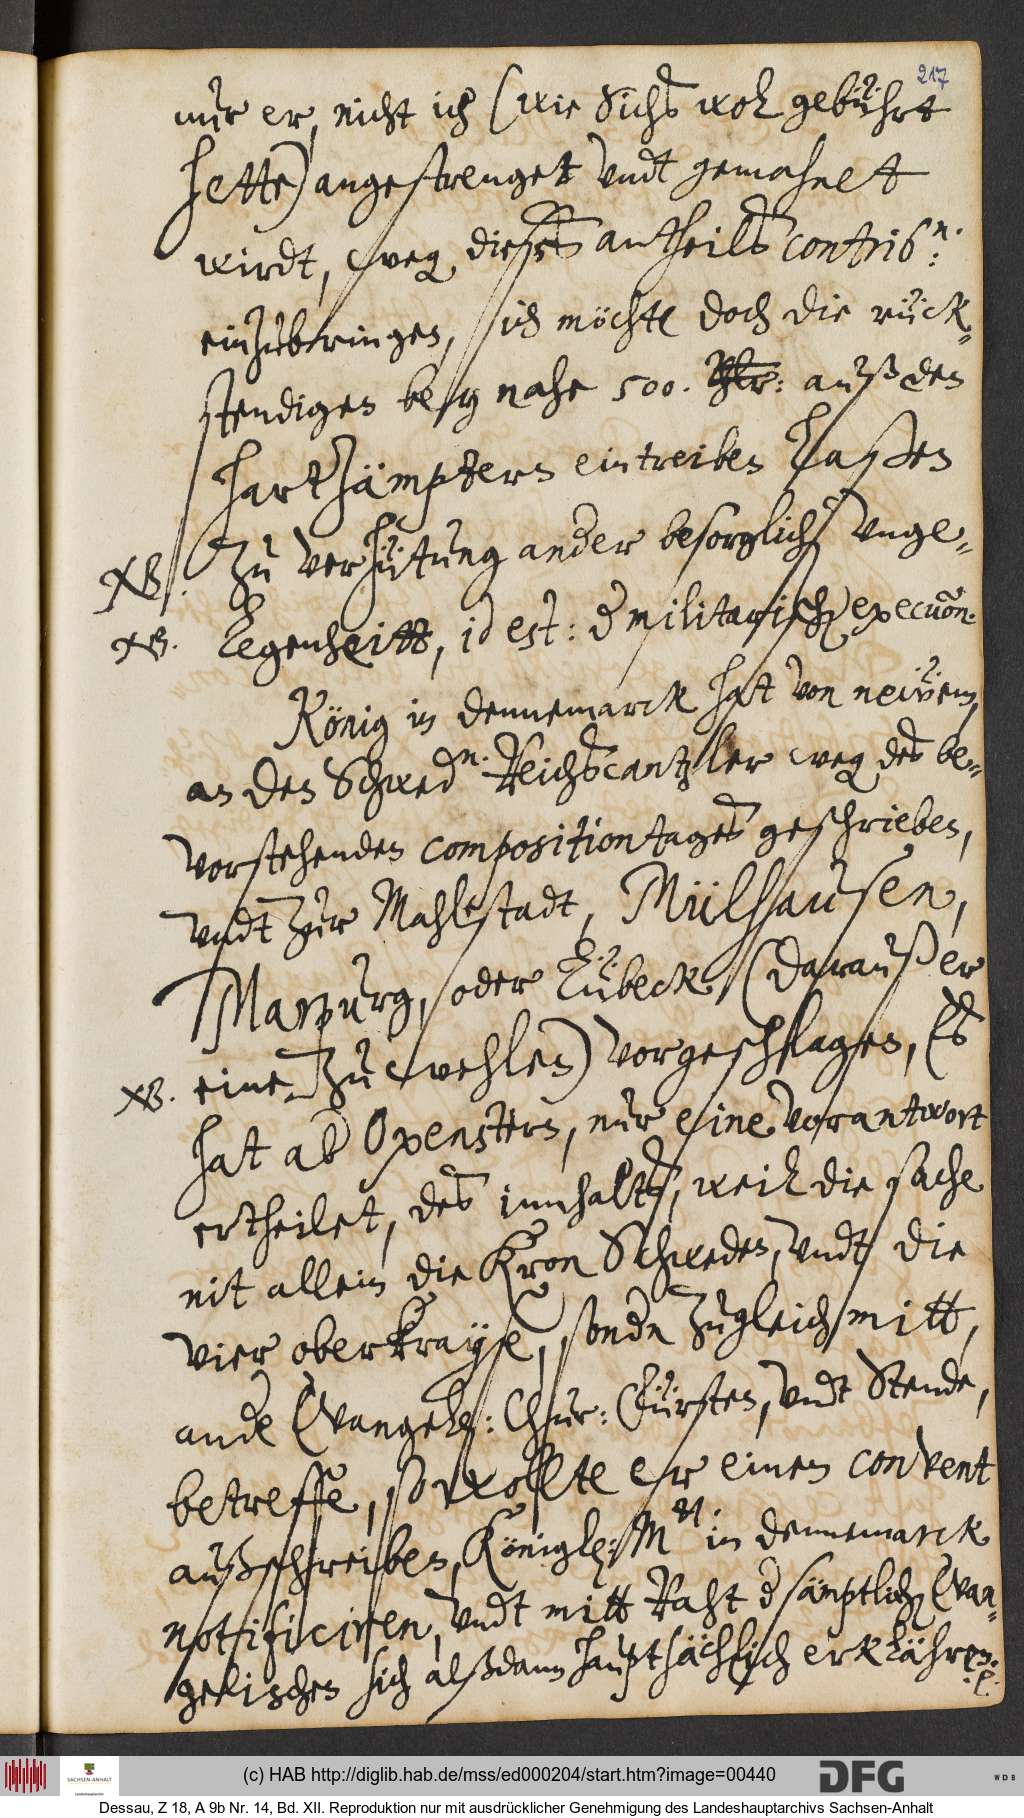 217
nur er, nicht ich (wie Sichs wol gebührt
hette) angestrenget undt gemahnett
wirdt, weg. dieses antheils contrib.n:
einzubringen, ich möchte doch die rück-
stendigen bey nahe 500. Thlr: auß den
hartzämptern eintreiben laßen
XB. Zu verhütung ander besorglich unge-
XB. legenheitt, id est: d militarisch execuõn.
König in dennemarck hat von neüem,
an den Schwed.n Reichscantzler weg. des be-
vorstehenden compositiontages geschrieben,
undt zur Mahlstadt, Mülhausen,
Marpurg, oder Lübeck (darauß er
XB. eine zu wehlen) vorgeschlagen, Es
hat ab Oxenstern, nur eine vorantwort
ertheilet, des innhalts, weil die sache
nit allein die Kron Schweden, undt die
vier oberkrayse, sonde zugleich mitt,
ande Evangel: Chur: Fürsten, undt Stende,
betreffe, so wollte er einen convent
außschreiben, Königl: Mt. in dennemarck
notificiren, undt mitt Raht d sämptlich Evan-
gelischen sich alßdann hauptsächlich erklähren.
(c) HAB http://diglib.hab.de/mss/ed000204/start.htm?image=00440
SACHSEN-ANHALT
Landeshauptarchiv
DFG
WDB
Dessau, Z 18, A 9b Nr. 14, Bd. XII. Reproduktion nur mit ausdrücklicher Genehmigung des Landeshauptarchivs Sachsen-Anhalt